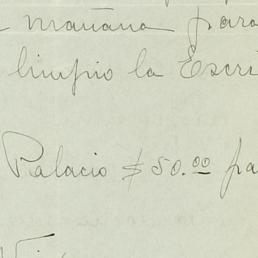 mañana para
limpio la Escri
Palacio $50.00 pa